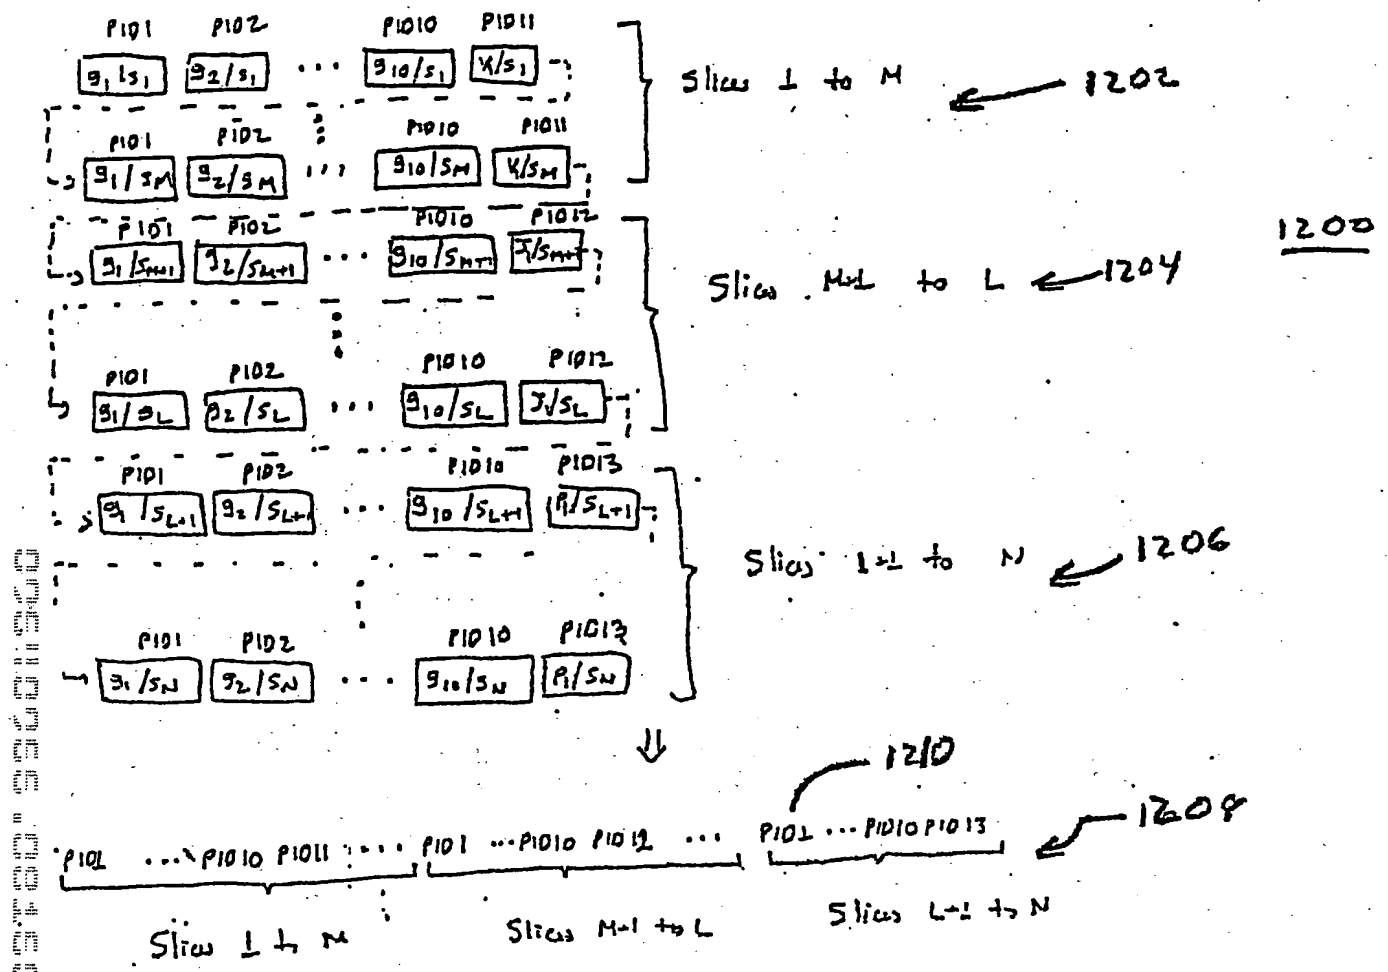 PID1 PID2 PID10 PID11
g1/s1 g2/s1 ... g10/s1 V1/s1
Slices 1 to M 1202
PID1 PID2 PID10 PID11
g1/sM g2/sM ... g10/sM V1/sM
PID1 PID2 PID10 PID12
g1/sM+1 g2/sM+1 ... g10/sM+1 J1/sM+1
Slices M+1 to L 1204
1200
PID1 PID2 PID10 PID12
g1/sL g2/sL ... g10/sL J1/sL
PID1 PID2 PID10 PID13
g1/sL+1 g2/sL+1 ... g10/sL+1 P1/sL+1
Slices L+1 to N 1206
PID1 PID2 PID10 PID13
g1/sN g2/sN ... g10/sN P1/sN
⇓
1210
1208
PID1 ... PID10 PID11 ... PID1 ... PID10 PID12 ... PID1 ... PID10 PID13
Slices 1 to M Slices M+1 to L Slices L+1 to N